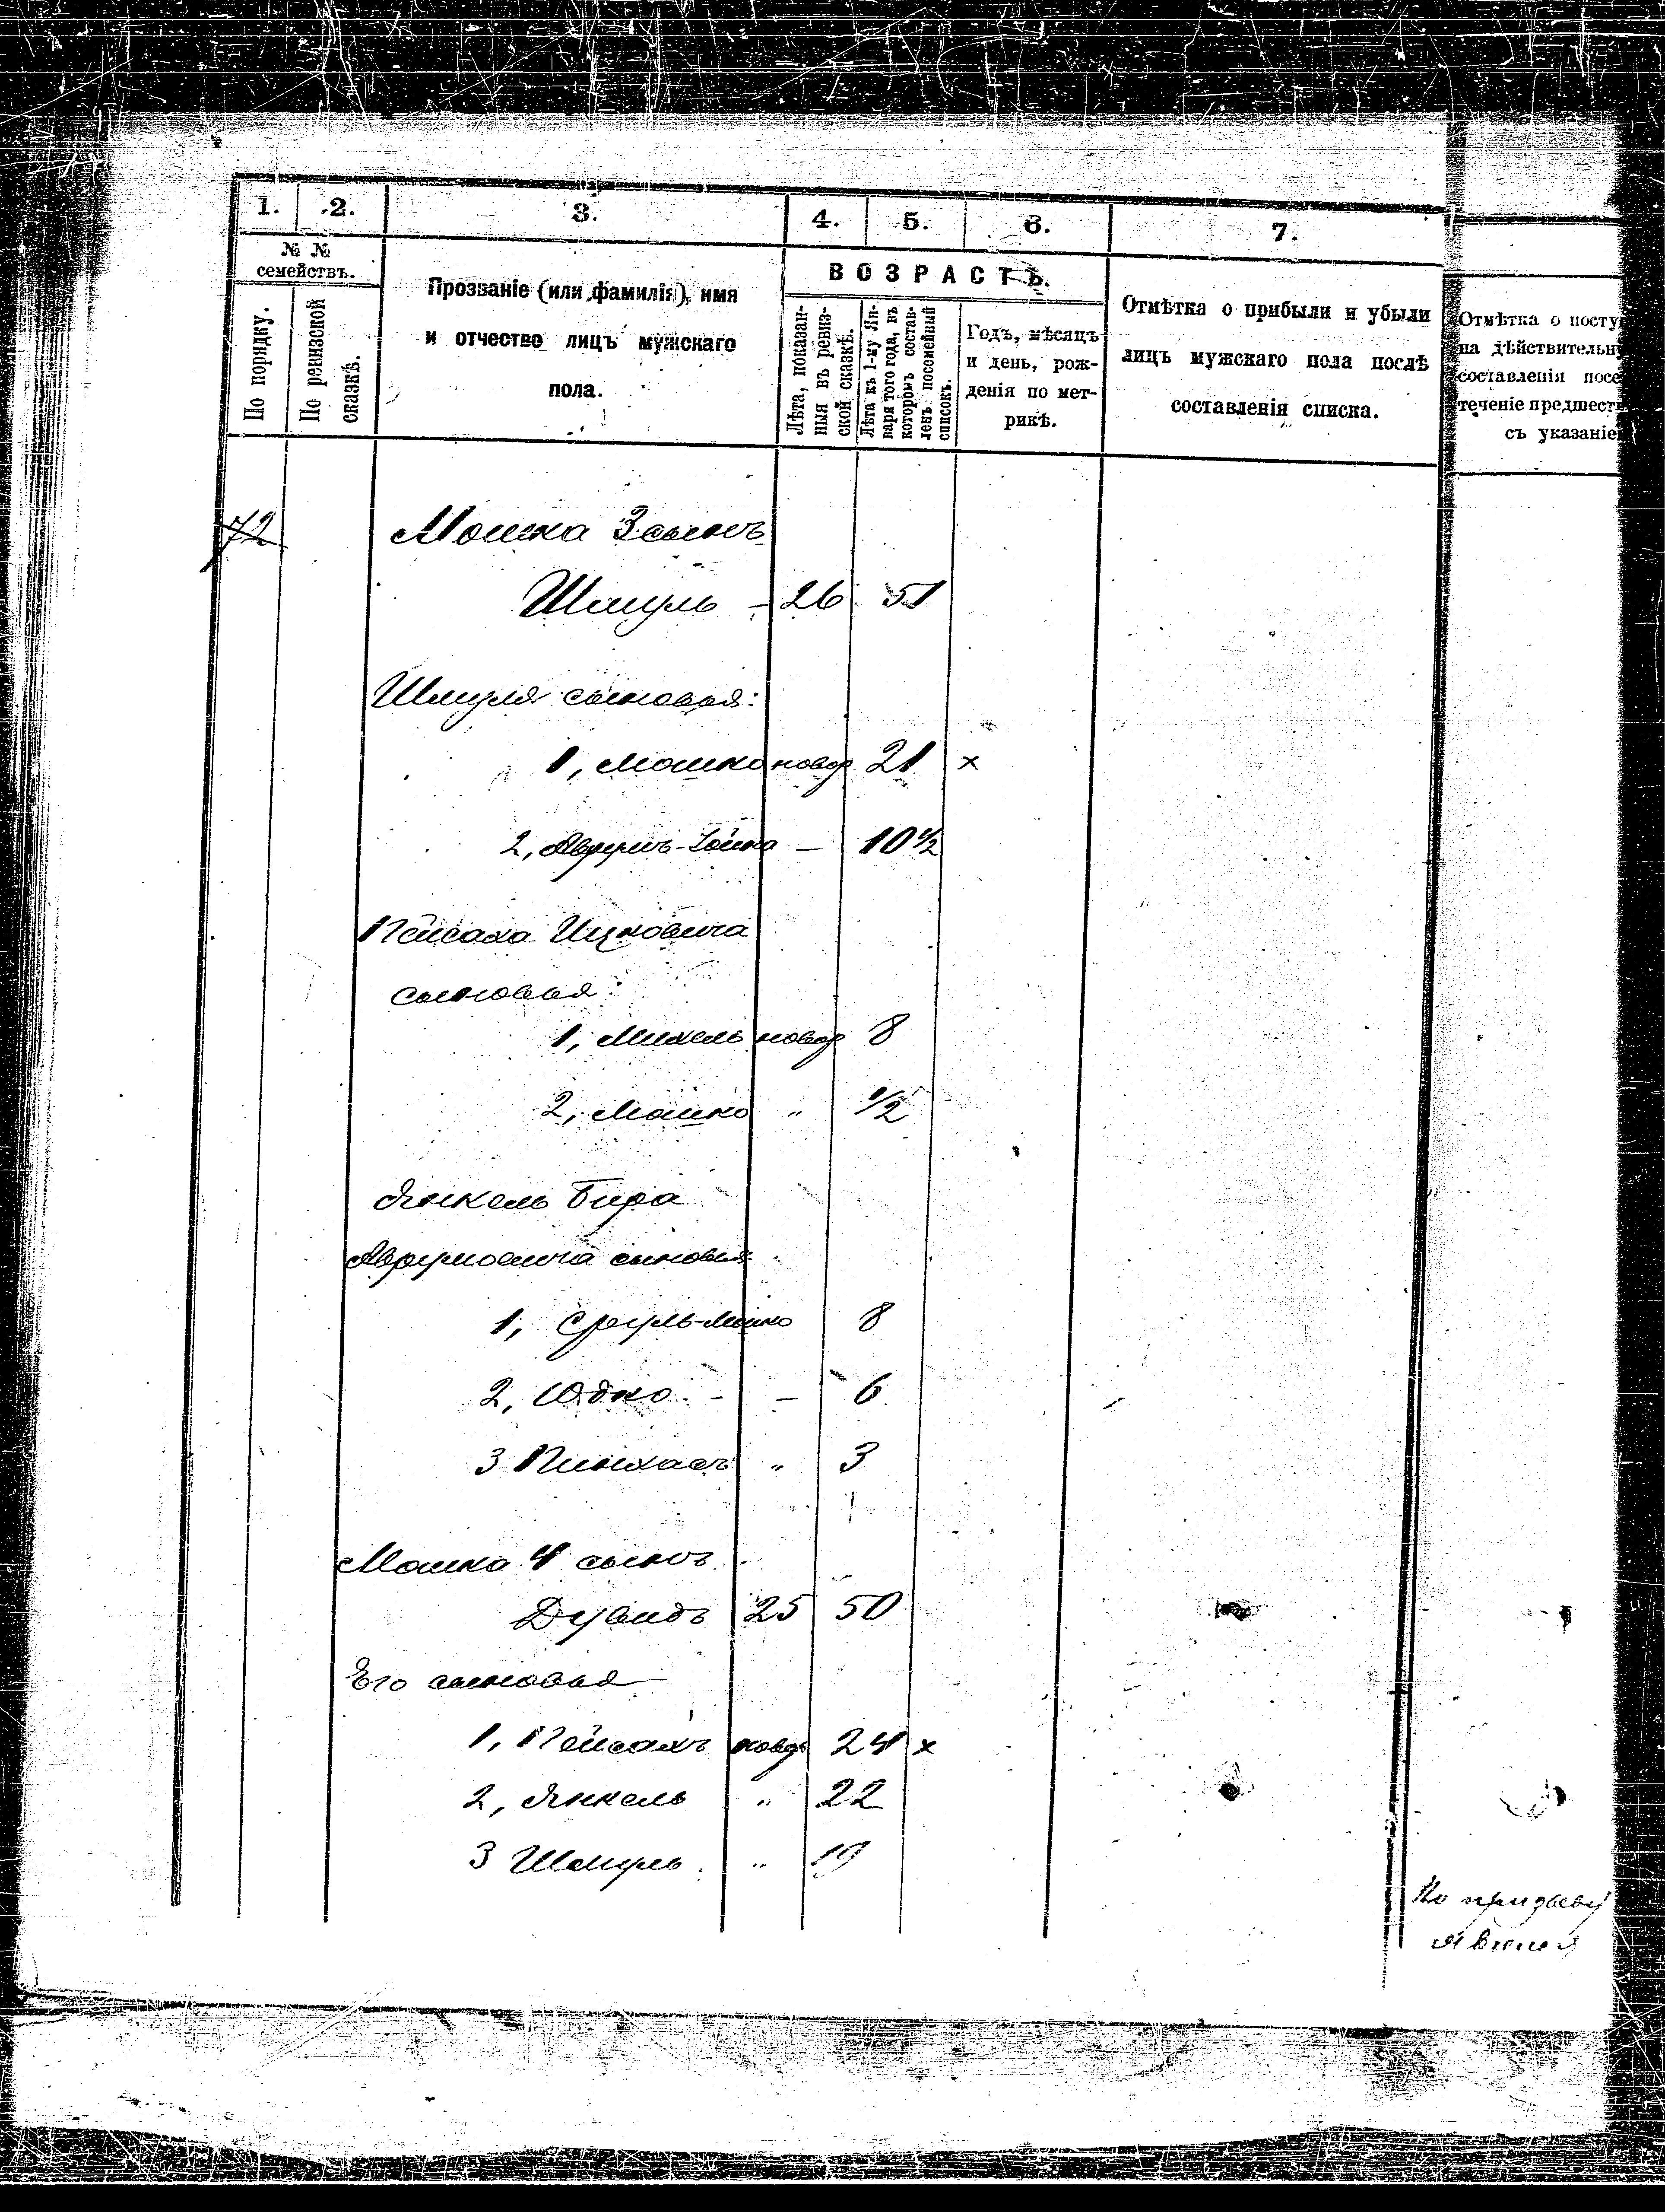 1. 2. 3. 4. 5. 6. 7.
№ №
семействъ.
По порядку.
По ревизской
сказкѣ.
Прозваніе (или фамилія), имя
и отчество лицъ мужскаго
пола.
ВОЗРАСТЪ.
Лѣта, показан-
ныя въ ревиз-
ской сказкѣ.
Лѣта къ 1-му Ян-
варя того года, въ
которомъ состав-
ленъ посемейный
списокъ.
Годъ, мѣсяцъ
и день, рож-
денія по мет-
рикѣ.
Отмѣтка о прибыли и убыли
лицъ мужскаго пола послѣ
составленія списка.
Отмѣтка о посту
на дѣйствительн
составленія посе
теченіе предшест
съ указаніе
72 Мошка 3 сынъ
Шмуль - 26 51
Шмуля сыновья:
1, Мошко новор 21 x
2, Аврумъ-Іойна — 10 1/2
Пейсаха Ицковича
сыновья:
1, Михель новор 8
2, Мошко " 1/2
Янкель Бира
Аврумовича сыновья:
1, Сруль-Мошко 8
2, Юдко - — 6
3 Пинхасъ " 3
Мошка 4 сынъ
Дувидъ 25 50
Его сыновья
1, Пейсахъ новор 24 x
2, Янкель " 22
3 Шмуль " 19
По призыву
явился